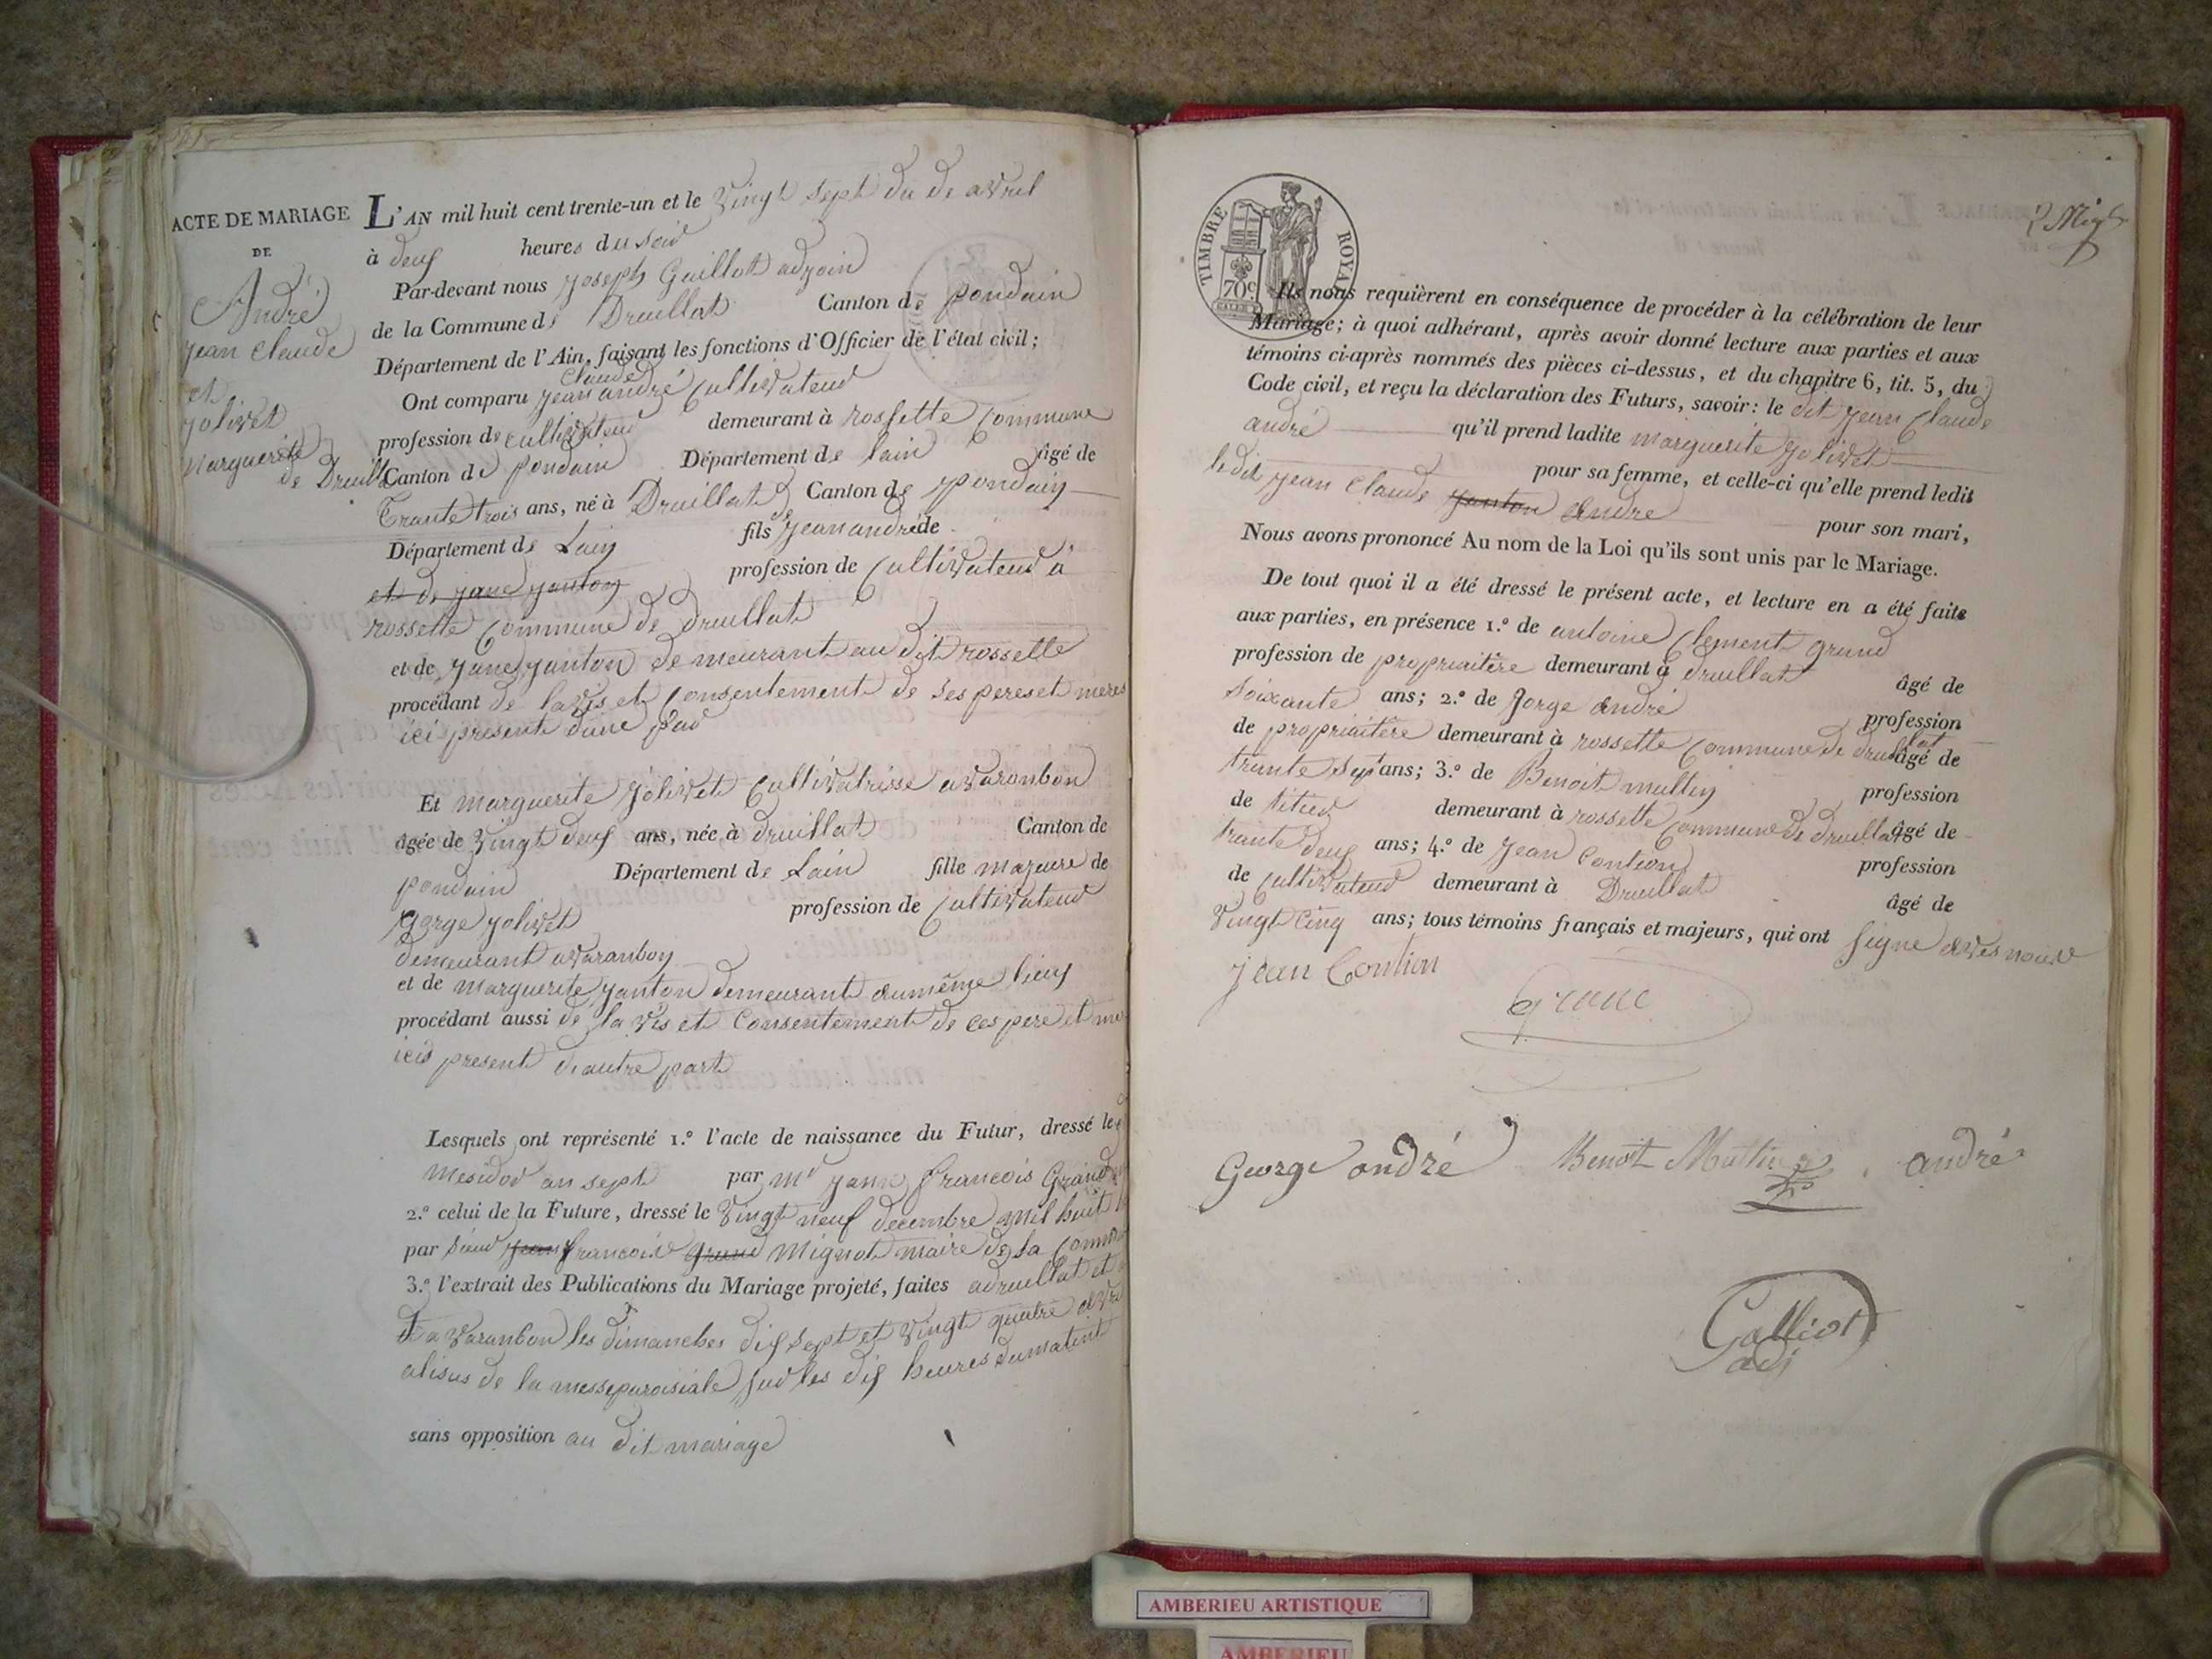 ACTE DE MARIAGE
DE
André
jean claude
et
jolivet
marguerite
de Druill
L'AN mil huit cent trente-un et le vingt sept du de avril
à deux heures du soir
Par-devant nous joseph Gaillot adjoin
de la Commune de Druillat Canton de pondain
Département de l'Ain, faisant les fonctions d'Officier de l'état civil;
claude
Ont comparu jean andré cultivateur
profession de cultivateur demeurant à rossette commune
Canton de pondain Département de lain âgé de
trante trois ans, né à Druillat Canton de pondain
Département de Lain fils de jean andré de
et de jane janton profession de cultivateur à
rossette commune de druillat
et de jane janton demeurant au dit rossette
procédant de lavis et consentement de ses peres et meres
ici present dune par
Et marguerite jolivet cultivatrisse a varanbon
âgée de vingt deux ans, née à druillat Canton de
pondain Département de Lain fille majeure de
gorge jolivet profession de cultivateur
demeurant a varanbon
et de marguerite janton demeurant au même lieux
procédant aussi de la vis et consentement de ces pere et me
icis present d'autre part
Lesquels ont représenté 1.º l'acte de naissance du Futur, dressé le
mesidor an sept par mr francois Grand
2.º celui de la Future, dressé le vingt neuf decembre mil huit
par sieur jean francois grand mignot maire de la comm
3.º l'extrait des Publications du Mariage projeté, faites a druillat et
a varanbon les dimanches dix sept et vingt quatre avri
alisus de la messe paroisiale sur les dix heures du matint
sans opposition au dit mariage
TIMBRE ROYAL
70c
Ils nous requièrent en conséquence de procéder à la célébration de leur
Mariage; à quoi adhérant, après avoir donné lecture aux parties et aux
témoins ci-après nommés des pièces ci-dessus, et du chapitre 6, tit. 5, du
Code civil, et reçu la déclaration des Futurs, savoir: le dit jean claude
andré qu'il prend ladite marguerite jolivet
pour sa femme, et celle-ci qu'elle prend ledit
le dit jean claude janton andré pour son mari,
Nous avons prononcé Au nom de la Loi qu'ils sont unis par le Mariage.
De tout quoi il a été dressé le présent acte, et lecture en a été faite
aux parties, en présence 1.º de antoine clement grand
profession de propriaitère demeurant à druillat âgé de
soixante ans; 2.º de jorge andré profession
de propriaitère demeurant à rossette commune de druillat âgé de
trante sept ans; 3.º de Benoit mullin profession
de demeurant à rossette commune de druillat âgé de
trante deux ans; 4.º de jean contion profession
de cultivateur demeurant à Druillat âgé de
vingt cinq ans; tous témoins français et majeurs, qui ont signe
jean Contion
George andré
Benoit
andré
Galliot
adj
AMBERIEU ARTISTIQUE
AMBERIEU